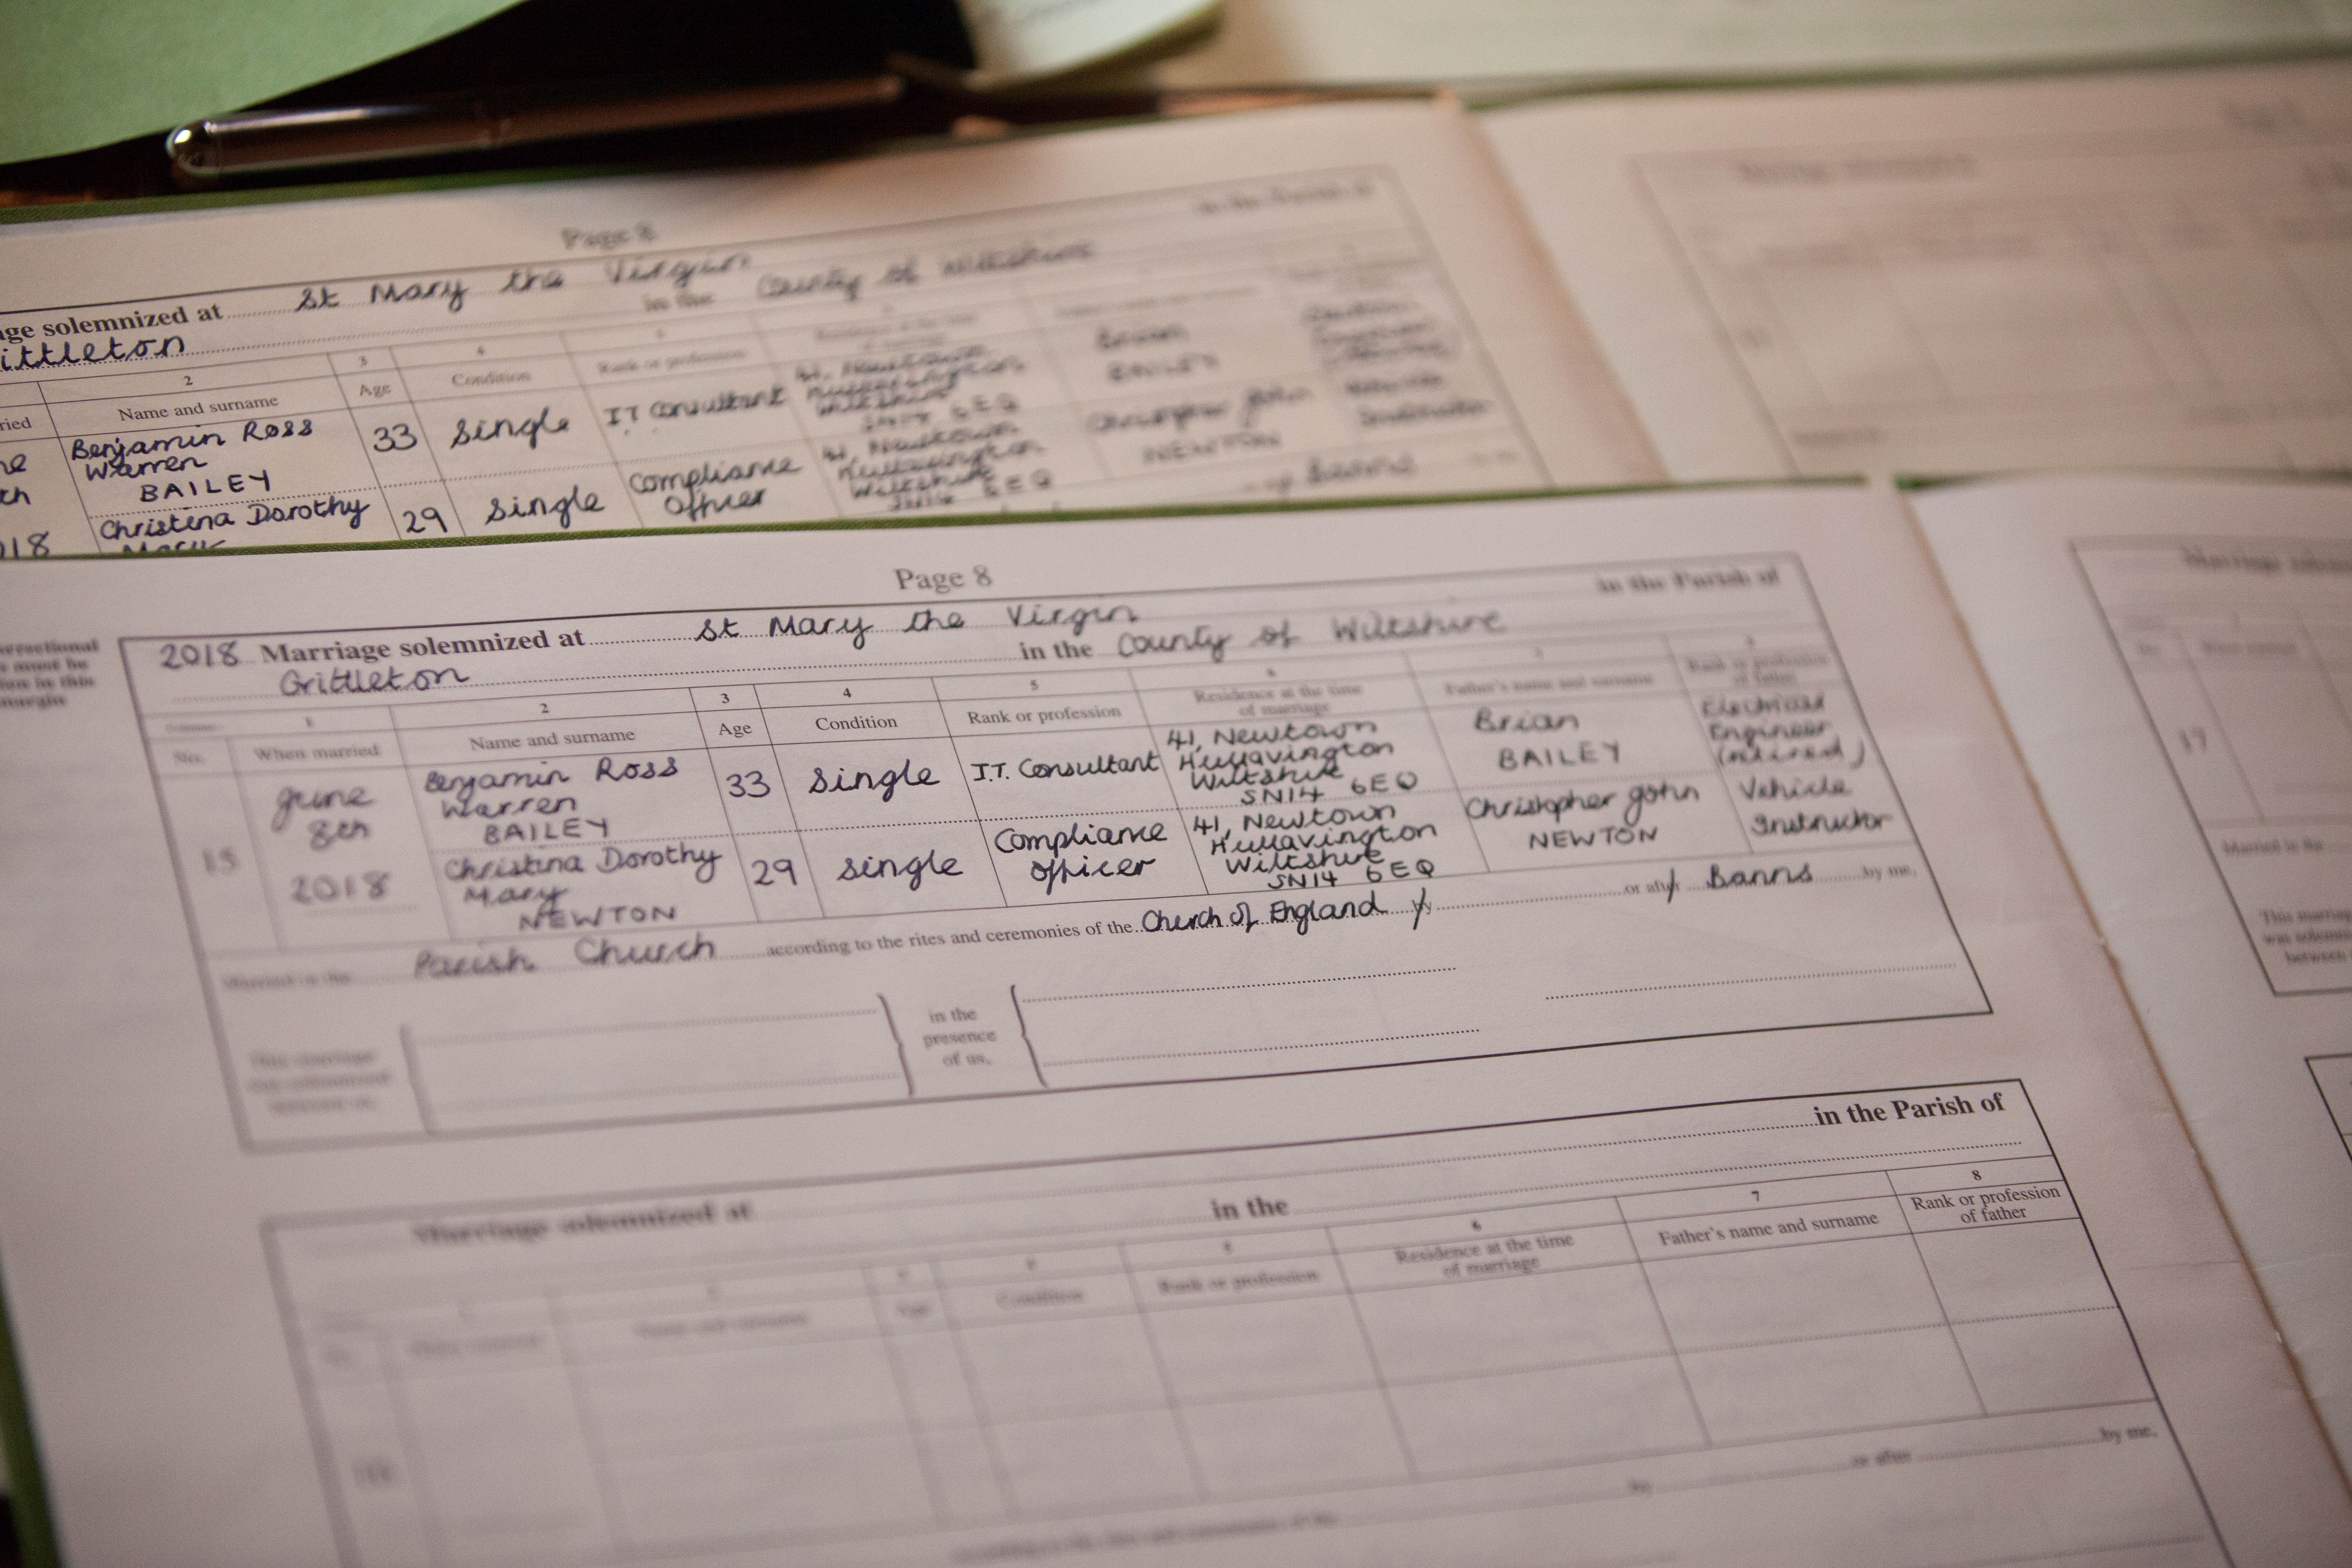 Page 8
in the Parish of
age solemnized at St Mary the Virgin
ittleton in the County of Wiltshire
2 3 4
ried Name and surname Age Condition Rank or profession
ne Benjamin Ross Warren BAILEY 33 Single I.T Consultant 41, Newtown Hullavington Wiltshire SN14 6EQ Brian BAILEY
th
018 Christina Dorothy Mary 29 Single Compliance Officer 41, Newtown Hullavington Wiltshire SN14 6EQ Christopher John NEWTON
Banns
Page 8
in the Parish of
2018 Marriage solemnized at St Mary the Virgin
Grittleton in the County of Wiltshire
1 2 3 4 5 6 7 8
No. When married Name and surname Age Condition Rank or profession Residence at the time of marriage Father's name and surname Rank or profession of father
15 June 8th 2018
Benjamin Ross
Warren
BAILEY
33 Single I.T. Consultant
41, Newtown
Hullavington
Wiltshire
SN14 6EQ
Brian
BAILEY
Electrical
Engineer
(retired)
Christina Dorothy
Mary
NEWTON
29 Single
Compliance
Officer
41, Newtown
Hullavington
Wiltshire
SN14 6EQ
Christopher John
NEWTON
Vehicle
Instructor
Married in the Parish Church according to the rites and ceremonies of the Church of England by or after Banns by me,
This marriage
was solemnized
between us,
in the
presence
of us,
in the Parish of
Marriage solemnized at in the
5 6 7 8
Name and surname Age Condition Rank or profession
Residence at the time
of marriage
Father's name and surname
Rank or profession
of father
by or after by me,
according to the rites and ceremonies of the
17
This marriage
was solemn
between